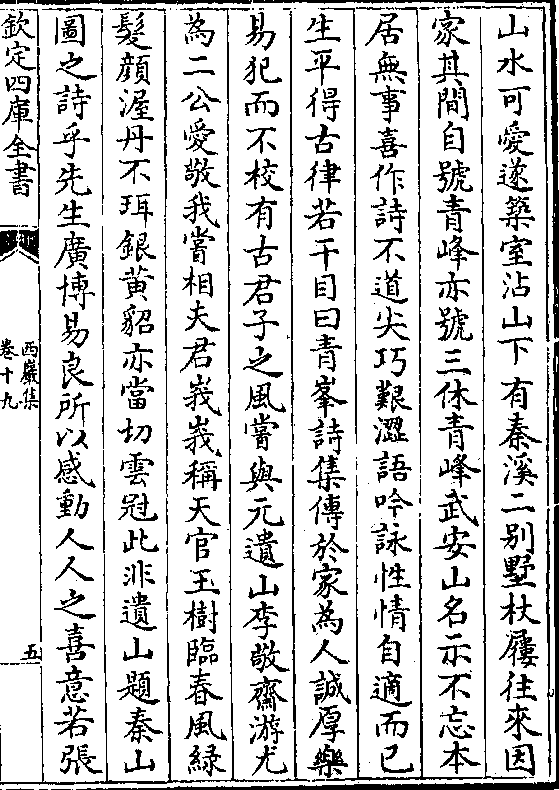 山水可愛遂築室沾山下有秦溪二别墅杖屨往來因
家其間自號青峰亦號三休青峰武安山名示不忘本
居無事喜作詩不道尖巧艱澀語吟詠性情自適而已
生平得古律若干目曰青峯詩集傳於家為人誠厚樂
易犯而不校有古君子之風嘗與元遺山李敬齋游尤
為二公愛敬我嘗相夫君峩峩稱天官玉樹臨春風緑
髮顔渥丹不珥銀黄貂亦當切雲冠此非遺山題秦山
圖之詩乎先生廣博易良所以感動人人之喜意若張
欽定四庫全書
西巖集
卷十九
五